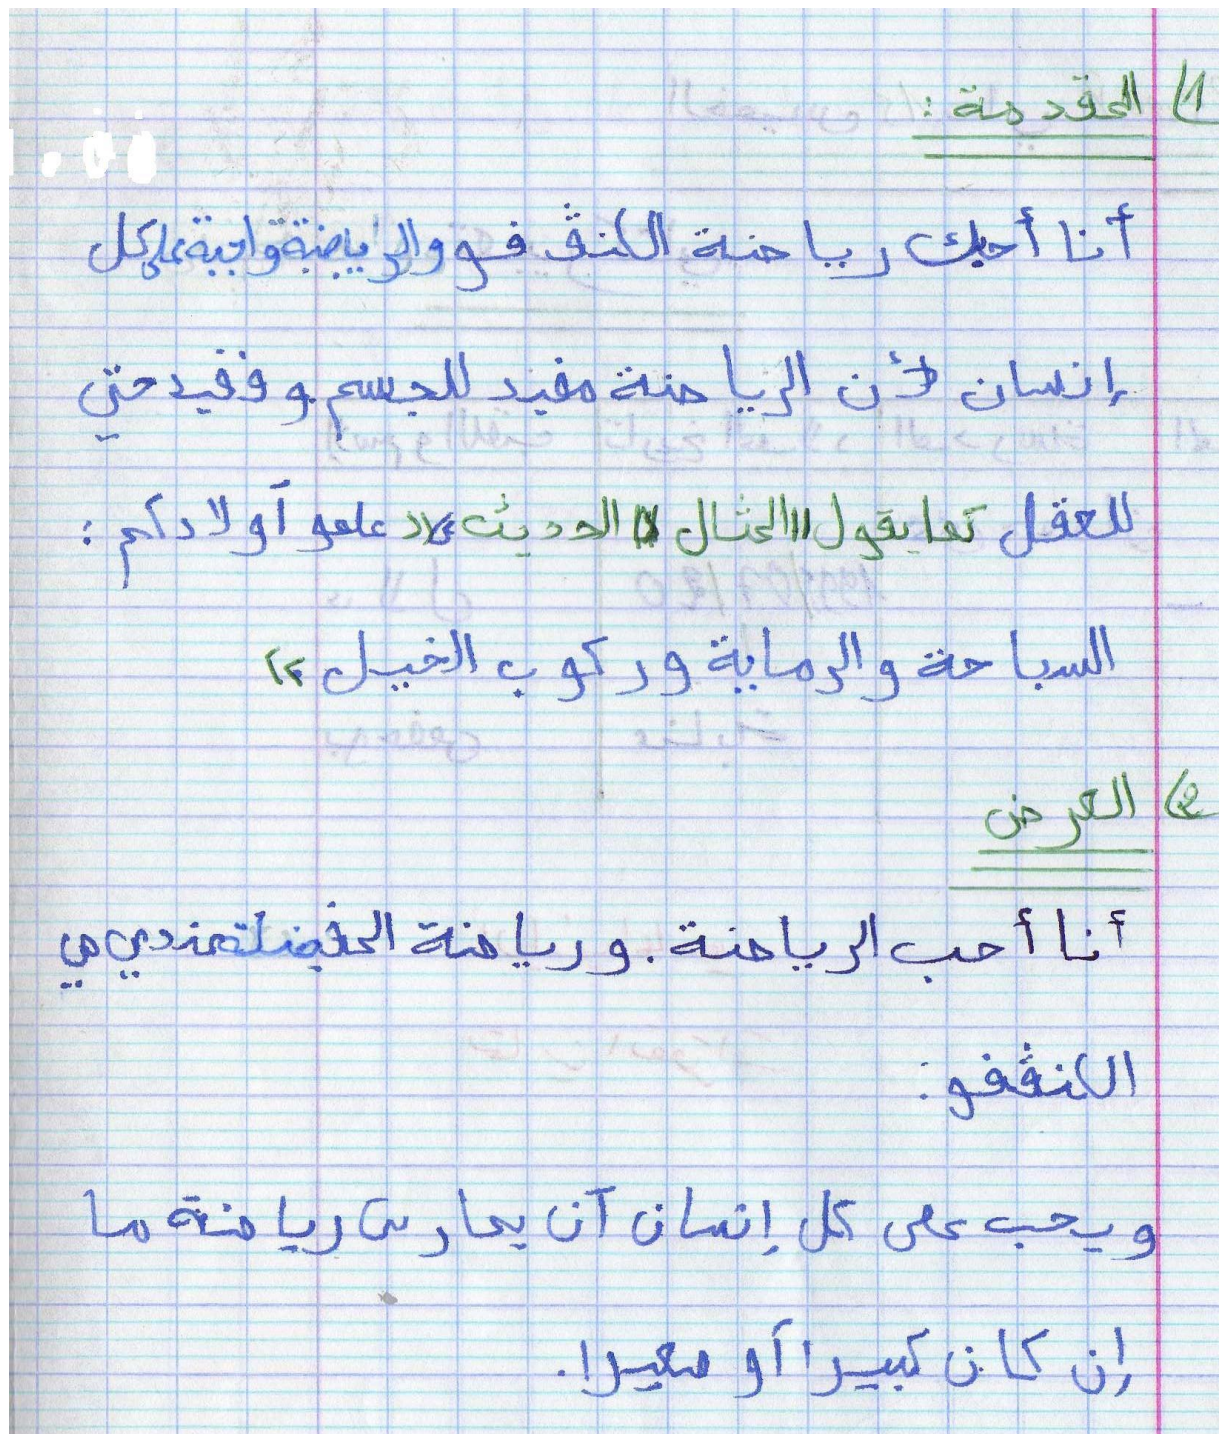 1) المقدمة :
أنا أحب رياضة الكنڨ فو والرياضة واجبة على كل
إنسان لأن الرياضة مفيد للجسم و فقيد حتي
للعقل كما يقول المثال الحديث علمو أولادكم :
السباحة والرماية وركوب الخيل
2) العرض
أنا أحب الرياضة. ورياضة المفضلة عندي هي
الكنڨفو :
ويجب على كل إنسان أن يمارس رياضة ما
إن كان كبيرا أو صغيرا.